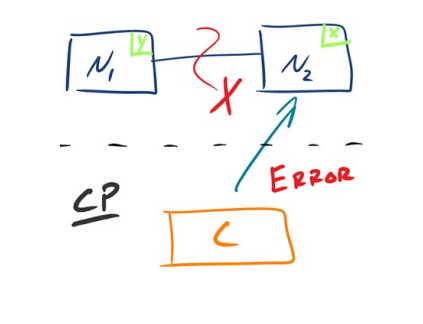 Y
N₁
X
N₂
X
ERROR
CP
C